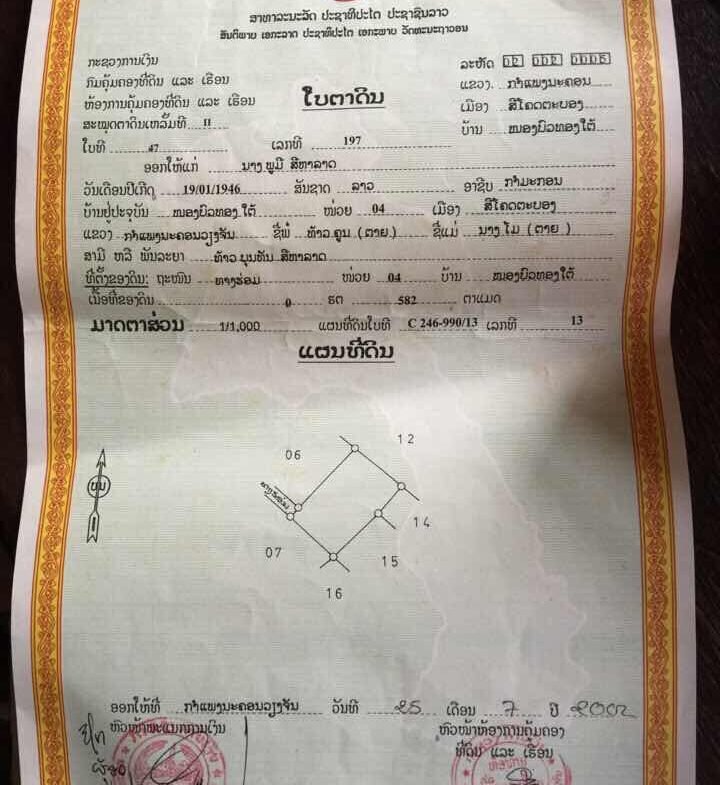 ສາທາລະນະລັດ ປະຊາທິປະໄຕ ປະຊາຊົນລາວ
ສັນຕິພາບ ເອກະລາດ ປະຊາທິປະໄຕ ເອກະພາບ ວັດທະນະຖາວອນ
ກະຊວງການເງິນ
ລະຫັດ 02 002 0005
ກົມຄຸ້ມຄອງທີ່ດິນ ແລະ ເຮືອນ
ແຂວງ. ກຳແພງນະຄອນ
ຫ້ອງການຄຸ້ມຄອງທີ່ດິນ ແລະ ເຮືອນ
ໃບຕາດິນ
ເມືອງ ສີໂຄດຕະບອງ
ສະໝຸດຕາດິນເຫລັ້ມທີ II
ບ້ານ ໜອງບົວທອງໃຕ້
ໃບທີ 47 ເລກທີ 197
ອອກໃຫ້ແກ່ ນາງ ພູມີ ສີຫາລາດ
ວັນເດືອນປີເກີດ 19/01/1946 ສັນຊາດ ລາວ ອາຊີບ ກຳມະກອນ
ບ້ານຢູ່ປະຈຸບັນ ໜອງບົວທອງ ໃຕ້ ໜ່ວຍ 04 ເມືອງ ສີໂຄດຕະບອງ
ແຂວງ ກຳແພງນະຄອນວຽງຈັນ ຊື່ພໍ່ ທ້າວ ຄູນ ( ຕາຍ ) ຊື່ແມ່ ນາງ ໂມ ( ຕາຍ )
ສາມີ ຫລື ພັນລະຍາ ທ້າວ ບຸນທັນ ສີຫາລາດ
ທີ່ຕັ້ງຂອງດິນ: ຖະໜົນ ທາງຮ່ອມ ໜ່ວຍ 04 ບ້ານ ໜອງບົວທອງໃຕ້
ເນື້ອທີ່ຂອງດິນ 0 ຮຕ 582 ຕາແມດ
ມາດຕາສ່ວນ 1/1,000 ແຜນທີ່ດິນໃບທີ C 246-990/13 ເລກທີ 13
ແຜນທີ່ດິນ
12
06
ທາງຮ່ອມ
14
07
15
16
ອອກໃຫ້ທີ່ ກຳແພງນະຄອນວຽງຈັນ ວັນທີ 25 ເດືອນ 7 ປີ 2002
ຫົວໜ້າພະແນກການເງິນ
ຫົວໜ້າຫ້ອງການຄຸ້ມຄອງ
ທີ່ດິນ ແລະ ເຮືອນ